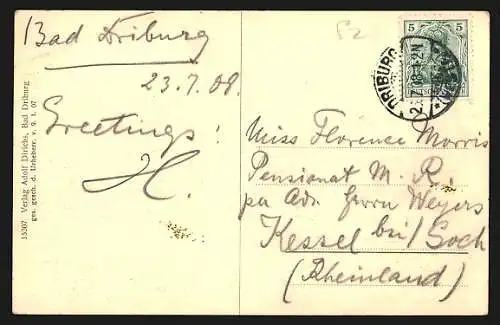 Bad Driburg
23.7.08.
Greetings!
H.
15307 Verlag Adolf Dirichs, Bad Driburg
ges. gesch. d. Urheberr. v. 9. 1. 07
52
5 5
DRIBURG
23.7.08.1-2N
Miss Florence Morris
Pensionat M. R.
pa Adr. Herrn Weyers
Kessel bei/ Goch
(Rheinland)